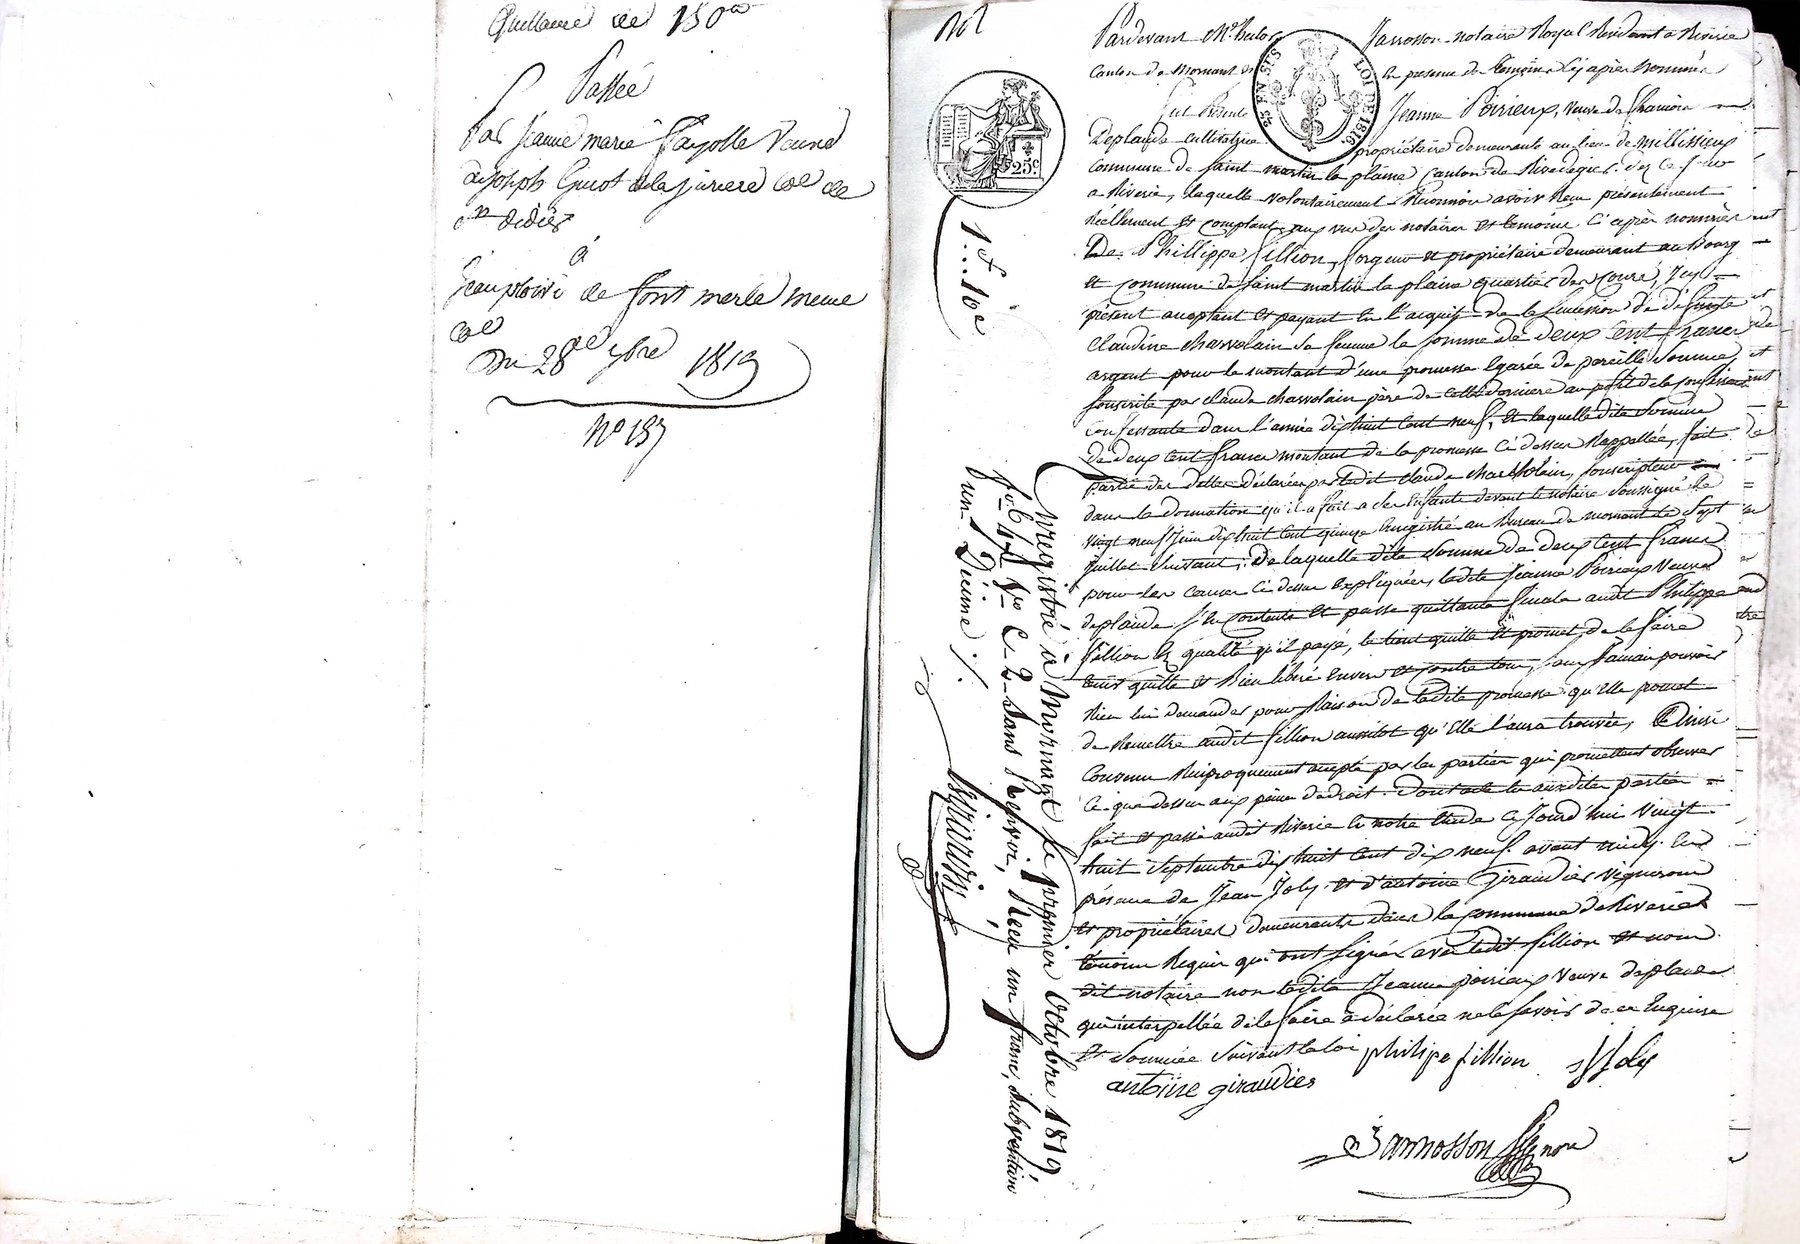 Quittance de 150
Passée
Par Jeanne marie fayolle Veuve
de joseph Guiot de la jurere coe de
st didier
à
de font merle meme
coe
Du 28 7bre 1819
No 137
Pardevant Me Jannosson notaire Royal Résidant a Riverie
canton de Mornant en presence de temoins cy après nommés
fut Présente Jeanne Poirieux, veuve de
Deplaude cultivatrice propriétaire demeurante au lieu de millissieux
commune de saint martin la plaine canton de Rivedegier. de ce
a Riverie, laquelle volontairement Reconnoit avoir Reçu présentement
Réellement et comptant aux vue des notaire et temoins ci après nommés
De Phillippe fillion, forgeur et propriétaire demeurant au Bourg
et commune de saint martin la plaine quartier des cours, Icy
présent acceptant et payant en l'acquit de la succession de défunte
claudine chavolain sa femme la somme de deux cent francs
argent pour le montant d'une promesse Egarée de pareille somme,
souscrite par claude chavolain père de cette dernière au profit de la
Confessante dans l'année dix huit cent neuf, Et laquelle dite somme
de deux cent francs montant de la promesse ci dessus Rappellée, fait
partie des dettes déclarées par ledit claude souscripteur
dans la donnation qu'il a fait a ses Enfants devant le notaire soussigné le
vingt neuf Juin dix huit cent quinze Enregistré au Bureau de mornant le sept
Juillet suivant; De laquelle dite somme de deux cent francs
pour les causes ci dessus Expliquées, ladite Jeanne Poirieux veuve
deplaude se contente et passe quittance finale audit Philippe
fillion En qualité qu'il paye, le tient quitte et promet, de le faire
tenir quitte et Bien libéré Envers et contre tous, sans Jamais pouvoir
Rien lui demander pour Raison de ladite promesse qu'elle promet
de Remettre audit fillion aussitot qu'Elle l'aura trouvée, Ainsi
Convenu Réciproquement accepté par les parties qui promettent observer
Ce que dessus aux peines de droit. Dont acte les susdites parties
fait et passé audit Riverie En notre Etude Ce Jourd'hui vingt
huit septembre dix huit cent dix neuf. avant midy En
présence de Jean Joly et d'antoine Giraudier vigneron
et propriétaires demeurants dans la commune de Riverie
témoins Requis qui ont signés avec ledit fillion et nous
dit notaire non ladite Jeanne poirieux veuve deplaude
qui interpellée de le faire à déclarée ne le savoir de ce Enquise
et sommée suivant la loi
philipe fillion
J Joly
antoine giraudier
Jannosson
LOI DE 1816
25c
1f..10c
Enregistré à Mornant le premier Octobre 1819
fo 64 Vo C 2 Sans Renvoi, Reçu un franc, subvention
un Décime